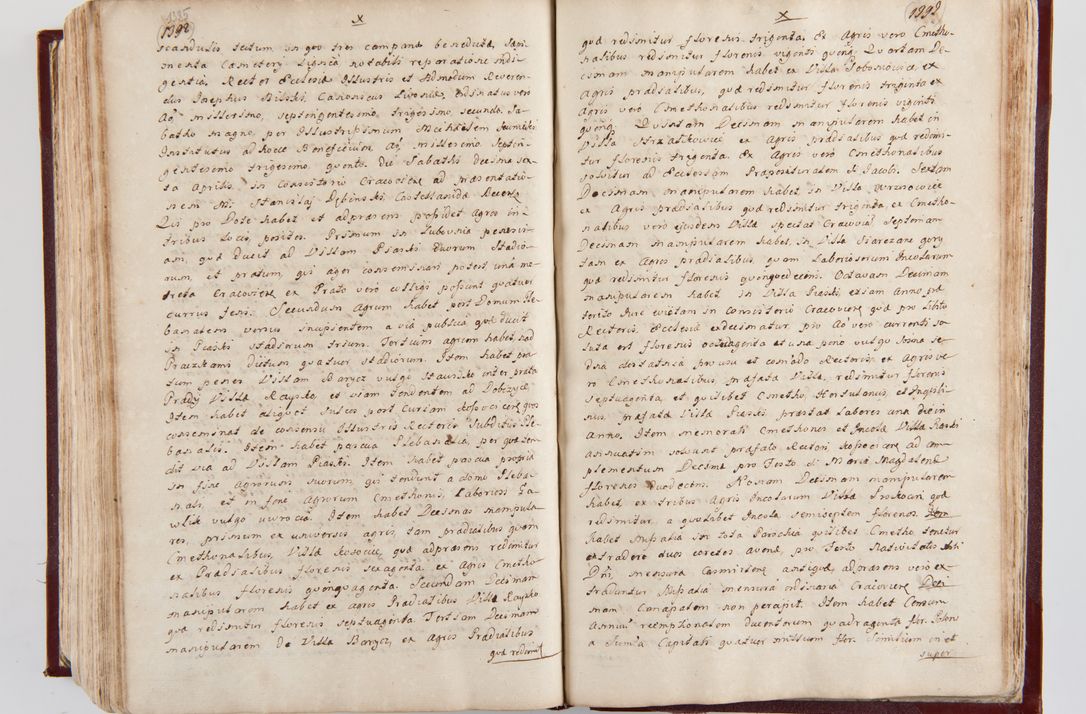 1392
X
Scandulis tectum in quo tres campanæ benedictæ, Sepi-
menta Cæmeterij Lignea notabili reparatione indi-
gentia. Rector Ecclesiæ Illustris et Admodum Reveren-
dus Josephus Canonicus Livoniæ, Ordinatus vero
Aº millesimo, septingentesimo, trigesimo, secundo, Sa-
batho magno, per Illustrissimum Michaelem
Institutus ad hocce Beneficium Aº millesimo Septin-
gentesimo trigesimo quinto die Sabathi decima sex-
ta Aprilis in Consistorio Cracoviensi ad præsentatio-
nem M. Stanislai Dębinski Castellanidæ
Qui pro Dote habet et adpræsens possidet agros in
tribus Locis positos. Primum in Lubovnia penes vi-
am, quæ ducit ad Villam Piaski duorum Stadio-
rum, et pratum, qui ager conseminari potest una me-
dreta Cracoviensi ex Prato vero colligi possunt quatuor
currus feni. Secundum Agrum habet post Domum Ple-
banalem versus incipientem a via publica quæ ducit
in Piaski stadiorum trium. Tertium agrum habet nad
Prauzkami dictum quatuor stadiorum. Item habet pra-
tum penes Villam Barycz vulgo Stawisko inter prata
Villæ Rayska et viam tendentem ad Dobczyce
Item habet aliquot sulcos post Curiam quos
conseminat de consensu Illustris Rectoris Subditus Ple-
banalis. Item habet pascua Plebanalia, per quæ ten-
dit via ad Villam Piaski. Item habet pascua propria
in fine agrorum suorum, qui tendunt a domo Pleba-
nali, et in fine Agrorum Cmethonis, Laboriosi Ga-
wlik vulgo uwrocia. Item habet Decimas manipula-
res, primum ex universis agris, tam prædialibus quam
Cmethonalibus, Villæ Kosocice, quæ adpræsens redimitur
ex Prædialibus florenis sexaginta ex Agris Cmetho-
nalibus florenis quinquaginta. Secundam Decimam
manipularem habet ex agris Prædialibus Villæ Rayska
quæ redimitur florenis septuaginta. Tertiam Decimam
manipularem de Villa Barycz, ex Agris Prædialibus
quæ redimitur

1393
X
quæ redimitur florenis triginta, Ex Agris vero Cmetho-
nalibus redimitur florenis viginti quinq. Quartam De-
cimam manipularem habet ex Villa ex
Agris prædialibus, quæ redimitur florenis triginta ex
Agris vero Cmethonalibus redimitur florenis viginti
quinq. Quintam Decimam manipularem habet in
Villa Strzałkowice ex Agris Prædialibus quæ redimi-
tur florenis triginta. Ex Agris vero Cmethonalibus
solvitur ad Ecclesiam Præposituratem S. Jacobi. Sextam
Decimam manipularem habet in Villa Wrzasowice
ex Agris Prædialibus quæ redimitur triginta, ex Cmetho-
nalibus vero ejusdem Villæ spectat Cracoviam Septimam
Decimam manipularem habet, in Villa Siarczane gory
tam ex Agris prædialibus, quam Laboriosorum Incolarum
quæ redimitur florenis quinquedecim. Octavam Decimam
manipularem habet in Villa Piaski, etiam anno præ-
terito Jure evictam in Consistorio Cracoviensi quæ pro libito
Rectoris Ecclesiæ exdecimatur. pro Aº vero currenti so-
luta est florenis octuaginta et una pono vulgo
pro usu et Rectoris ex Agris ve-
ro Cmethonalibus præfatæ Villæ, redimitur florenis
septuaginta, et quilibet Cmetho, Hortulanus, et Inquili-
nus, præfatæ Villæ Piaski præstat Labores una die in
Anno. Item memorati Cmethones et Incolæ Villæ Piaski
annuatim solvunt præfato Rectori ad am-
plementum Decimæ pro Festo S. Mariæ Magdalenæ
florenos Duodecim. Nonam Decimam manipularem
habet, ex tribus Agris Incolarum Villæ Prokocim quæ
redimitur a quolibet Incola semiseptem florenos.
habet Missalia in tota Parochia quilibet Cmetho tenetur
extradere duos coretos avenæ, pro Festo Nativitatis
Dñi mensura Casimiriensi antiqua, adpræsens vero ex-
traduntur Missalia mensura ordinaria Cracoviensi Deci-
mam Conapalem non percipit. Item habet Censum
Annuum reemptionalem ducentorum quadraginta flor. Polon
a Summa Capitali quatuor millium flor. Similium in et
super